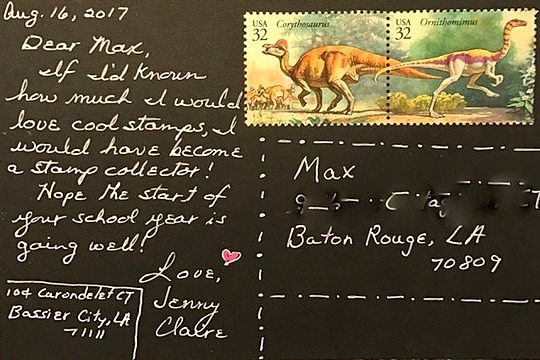 Aug. 16, 2017
Dear Max,
If I'd known
how much I would
love cool stamps, I
would have become
a stamp collector!
Hope the start of
your school year is
going well!
Love,
Jenny
Claire
104 Carondelet CT
Bassier City, LA
71111
USA
32
Corythosaurus
USA
32
Ornithomimus
Max
Baton Rouge, LA
70809